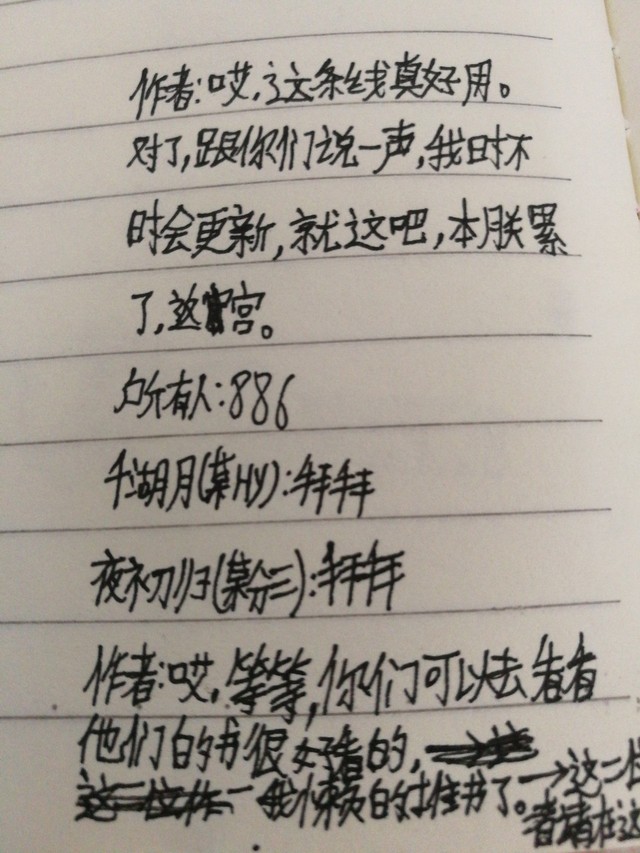 作者:哎,这条线真好用。
对了,跟你们说一声,我时不
时会更新,就这吧,本朕累
了,这宫。
所有人:886
千湖月(某HY):拜拜
夜初归(某分三):拜拜
作者:哎,等等,你们可以去看看
他们的书很好看的,
我懒的推书了。→这二位
者请在这